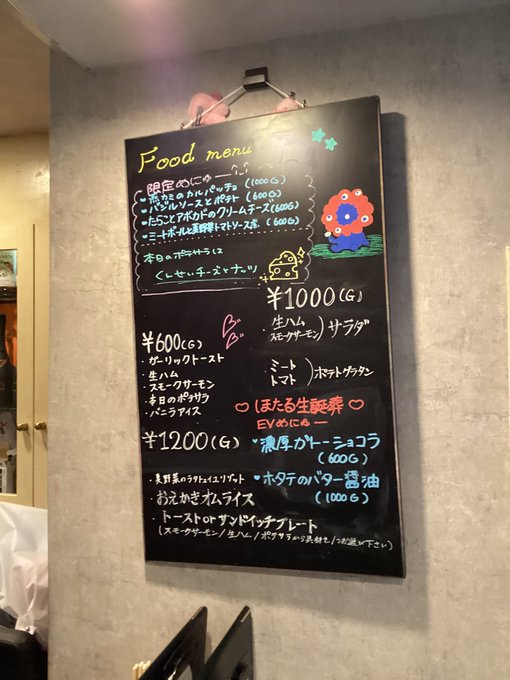 Food menu
限定めにゅー
のカルパッチョ (1000G)
バジルソースとポテト (600G)
たらことアボカドのクリームチーズ(600G)
ミートボールと夏野菜トマトソース煮 (600G)
本日のポテサラは
くんせいチーズとナッツ
¥1000(G)
生ハム
スモークサーモン ) サラダ
ミート
トマト ) ポテトグラタン
¥600(G)
・ガーリックトースト
・生ハム
・スモークサーモン
・本日のポテサラ
・バニラアイス
♡ほたる生誕葬♡
EVめにゅー
♥濃厚ガトーショコラ
(600G)
♥ホタテのバター醤油
(1000G)
¥1200(G)
・夏野菜のラタトゥイユリゾット
・おえかきオムライス
・トーストorサンドイッチプレート
(スモークサーモン/生ハム/ポテサラから具材を1つお選び下さい)